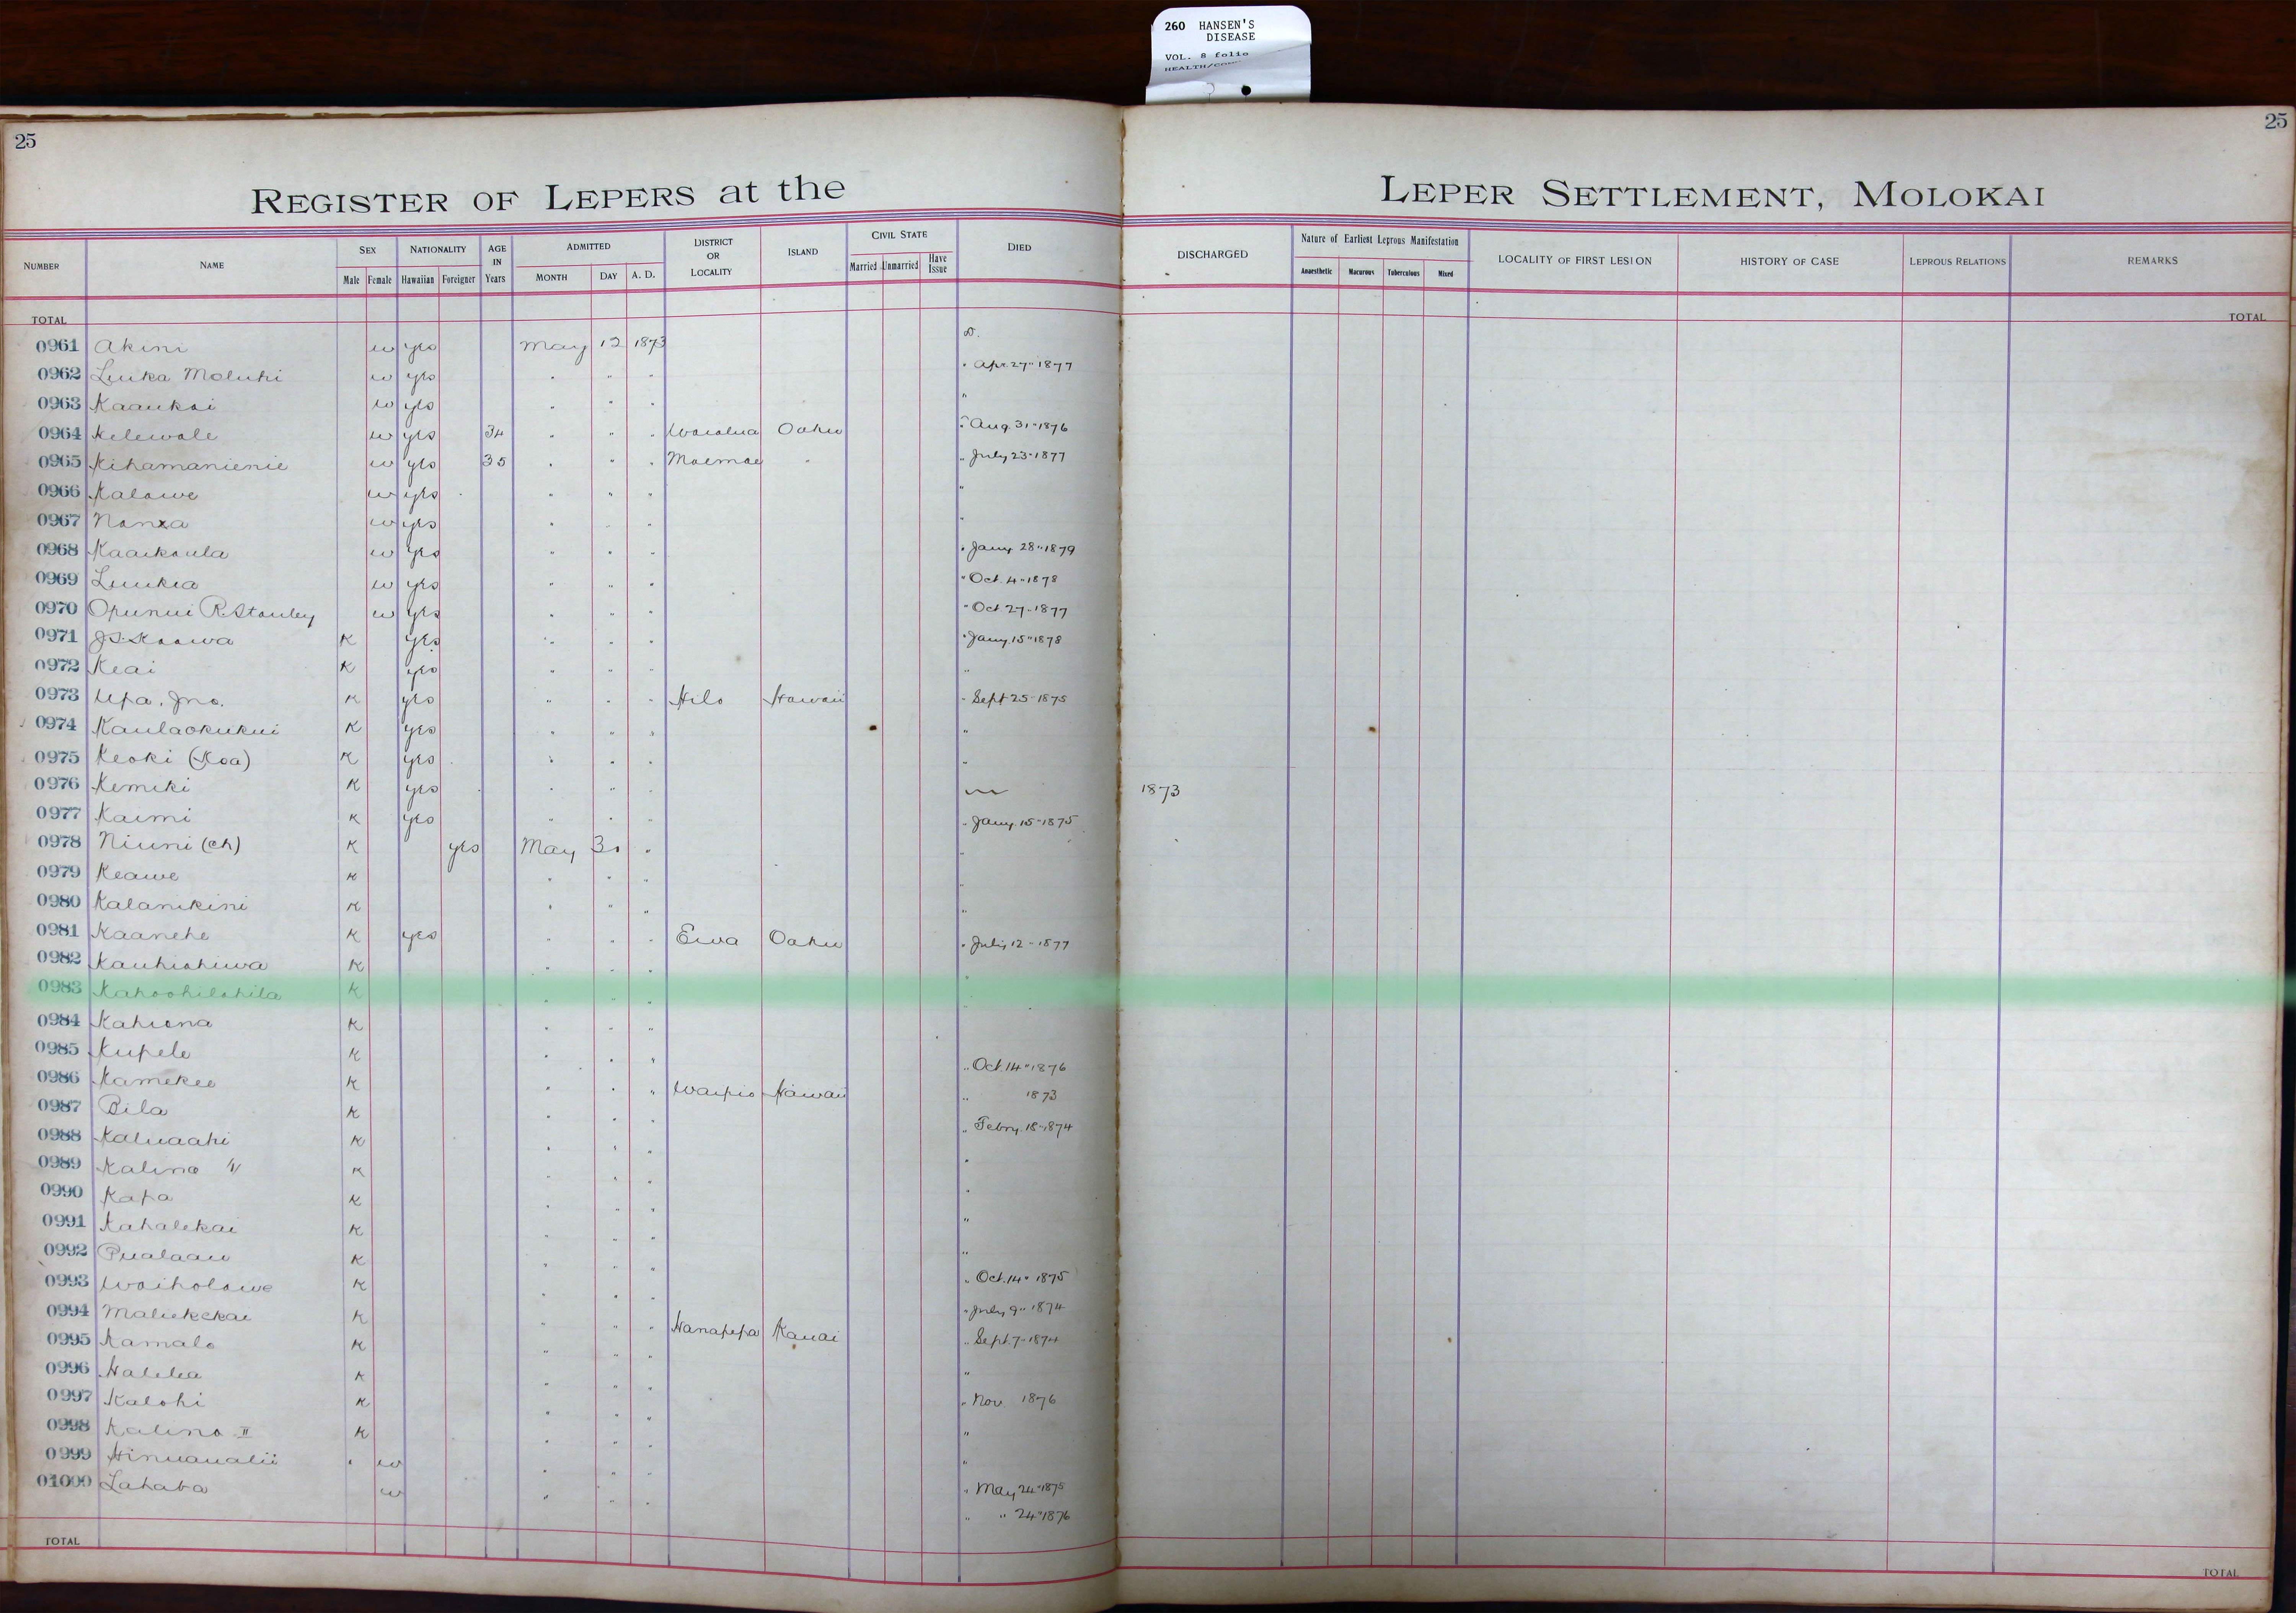 260 HANSEN'S
DISEASE
VOL. 8 folio
25
25
REGISTER OF LEPERS at the LEPER SETTLEMENT, MOLOKAI
NUMBER NAME SEX Male Female NATIONALITY Hawaiian Foreigner AGE IN Years ADMITTED MONTH DAY A. D. DISTRICT OR LOCALITY ISLAND CIVIL STATE Married Unmarried Have Issue DIED DISCHARGED Nature of Earliest Leprous Manifestation Anaesthetic Macurous Tuberculous Mixed LOCALITY OF FIRST LESION HISTORY OF CASE LEPROUS RELATIONS REMARKS
TOTAL TOTAL
0961 Akini w yes May 12 1873 D.
0962 Luika Moluhi w yes " " " " Apr. 27" 1877
0963 Kaaukai w yes " " " "
0964 Kelewale w yes 34 " " " Waialua Oahu " Aug. 31" 1876
0965 Kihamanienie w yes 35 " " " Moemoe " " July 23" 1877
0966 Kalawe w yes " " " "
0967 w yes " " " "
0968 Kaaikaula w yes " " " " Jany. 28" 1879
0969 Luukia w yes " " " " Oct. 4" 1878
0970 Opunui R. Stanley w yes " " " " Oct 27" 1877
0971 J. S. Kaawa K yes " " " " Jany. 15" 1878
0972 Keai K yes " " " "
0973 Upa. Jno. K yes " " " Hilo Hawaii " Sept 25" 1875
0974 Kaulaokukui K yes " " " "
0975 Keoki (Koa) K yes " " " "
0976 Kemiki K yes " " " 1873
0977 Kaimi K yes " " " " Jany. 15" 1875
0978 Niuni (ch) K yes May 30 " "
0979 Keawe K " " " "
0980 Kalanikini K " " " "
0981 Kaanehe K yes " " " Ewa Oahu " July 12" 1877
0982 Kauhiahiwa K " " " "
0983 Kahoohilahila K " " " "
0984 Kahiona K " " "
0985 Kupele K " " " " Oct. 14" 1876
0986 Kamekeo K " " " Waipio Hawaii " 1873
0987 Bila K " " " " Febry. 18" 1874
0988 Kaluaahi K " " " "
0989 Kalino K " " " "
0990 Kapa K " " " "
0991 Kahalekai K " " " "
0992 Pualaau K " " " " Oct. 14" 1875
0993 Waiholowe K " " " " July 9" 1874
0994 Maliekekai K " " " Hanapepa Kauai " Sept. 7" 1874
0995 Kamalo K " " " "
0996 Halelea K " " " " Nov. 1876
0997 Kalohi K " " " "
0998 Kalino II K " " " "
0999 Hinuaualii w " " " " May 24" 1875
01000 Lahaba w " " " " " 24" 1876
TOTAL TOTAL